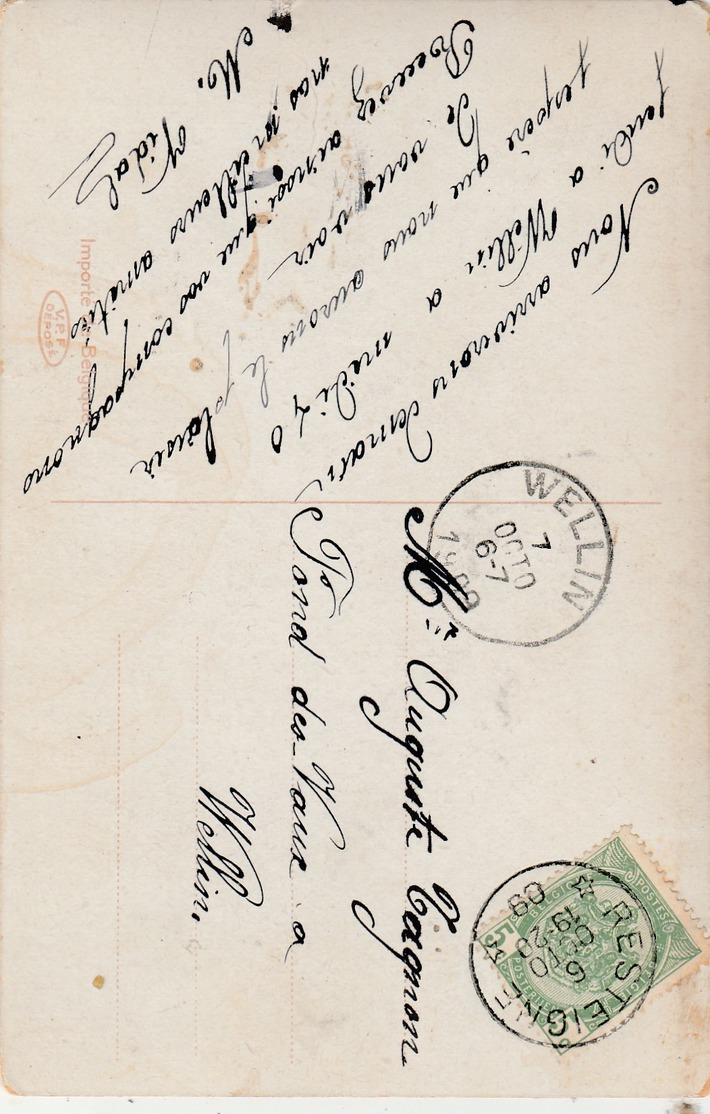 Nous arriverons demain
jeudi a Wellin a midi 40
j'espère que nous aurons le plaisir
de vous voir
Recevez ainsi que vos compagnons
nos meilleurs amitiés
M. Vidal
Importé de Belgique
V.P.F
DÉPOSÉ
Mr Auguste Tagnon
Fond-des-Vaux a
Wellin.
WELLIN
7
OCTO
6-7
1909
RESTEIGNE
6
OCTO
19-20
09
BELGIQUE
POSTES
5